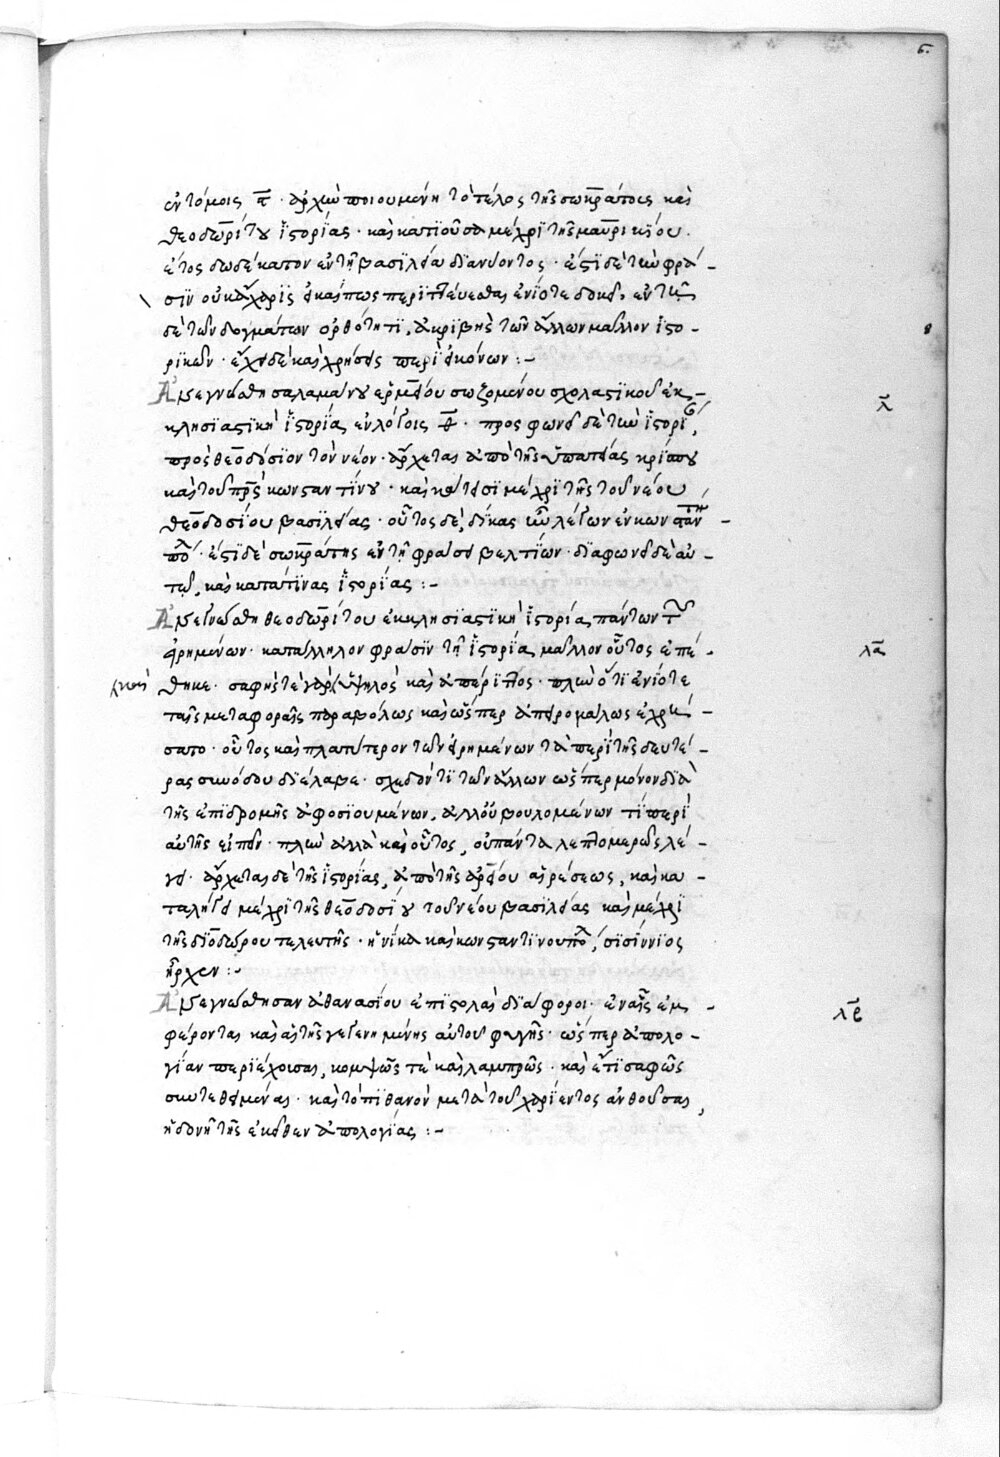 6.
ἐν τόμοις ϛ̄· ἀρχὴν ποιουμένη τὸ τέλος τῆς σωκράτους καὶ
θεοδωρίτου ἱστορίας· καὶ κατιοῦσα μέχρι τῆς μαυρικίου
ἔτος δωδέκατον ἐν τῇ βασιλεία διανύοντος· ἔστι δὲ τὴν φρά-
σιν οὐκ ἄχαρις εἰ καί πως περιττεύεσθαι ἐνίοτε δοκεῖ, ἐν τῆ
δὲ τῶν δογμάτων ὀρθότητι, ἀκριβὴς τῶν ἄλλων μᾶλλον ἱστο-
ρικῶν· ἔχει δὲ καὶ χρήσεις περὶ εἰκόνων :-
Ἀνεγνώσθη σαλαμάνου ἑρμείου σωζομένου σχολαστικοῦ ἐκ-
κλησιαστικὴ ἱστορία ἐν λόγοις θ̄· προσφωνεῖ δὲ τὴν ἱστορί
πρὸς θεοδόσιον τὸν νέον· ἄρχεται ἀπὸ τῆς ὑπατείας κρίσπου
καὶ τοῦ πρς κωνσταντίνου· καὶ κάτεισι μέχρι τῆς τοῦ νέου
θεοδοσίου βασιλείας· οὗτος δὲ, δίκας ἦν λέγων ἐν κωνσταντι-
πόλ· ἔστι δὲ σωκράτης ἐν τῇ φράσει βελτίων· διαφωνεῖ δὲ αὐ-
τῶ, καὶ κατά τινας ἱστορίας :-
Ἀνεγνώσθη θεοδωρίτου ἐκκλησιαστικὴ ἱστορία, πάντων τῶν
εἰρημένων· κατάλληλον φράσιν τῇ ἱστορία μᾶλλον οὗτος ἐπέ-
θηκε· σαφής τε γὰρ καὶ ὑψηλὸς καὶ ἀπέριττος· πλὴν ὅτι ἐνίοτε
ταῖς μεταφοραῖς παραβόλως καὶ ὥσπερ ἀπειροκάλως ἐχρή-
σατο· οὗτος καὶ πλατύτερον τῶν εἰρημένων τὰ περὶ τῆς δευτέ-
ρας συνόδου διέλαβε· σχεδόν τι τῶν ἄλλων ὥσπερ μόνον διὰ
τῆς ἐπιδρομῆς ἀφοσιουμένων, ἀλλ' οὐ βουλομένων τὶ περὶ
αὐτῆς εἰπεῖν· πλὴν ἀλλὰ καὶ οὗτος, οὐ πάντα λεπτομερῶς λέ-
γει· ἄρχεται δὲ τῆς ἱστορίας, ἀπὸ τῆς ἀρείου αἱρέσεως, καὶ κα-
ταλήγει μέχρι τῆς θεοδοσίου τοῦ νέου βασιλείας καὶ μέχρι
τῆς διοδώρου τελευτῆς· ἡνίκα καὶ κωνσταντινουπόλ, σισίννιος
ἦρχεν :-
Ἀνεγνώσθησαν ἀθανασίου ἐπιστολαὶ διάφοροι· ἐν αἷς ἐμ-
φέρονται καὶ αἱ τῆς γεγενημένης αὐτοῦ φυγῆς· ὥσπερ ἀπολο-
γίαν περιέχουσαι, κομψῶς τὲ καὶ λαμπρῶς· καὶ ἔτι σαφῶς
συντεθειμέναι· καὶ τὸ πιθανὸν μετὰ τοῦ χαρίεντος ἀνθοῦσαι,
ἡδονὴ τῆς ἐκεῖθεν ἀπολογίας :-
λ̄
λᾱ
λβ̄